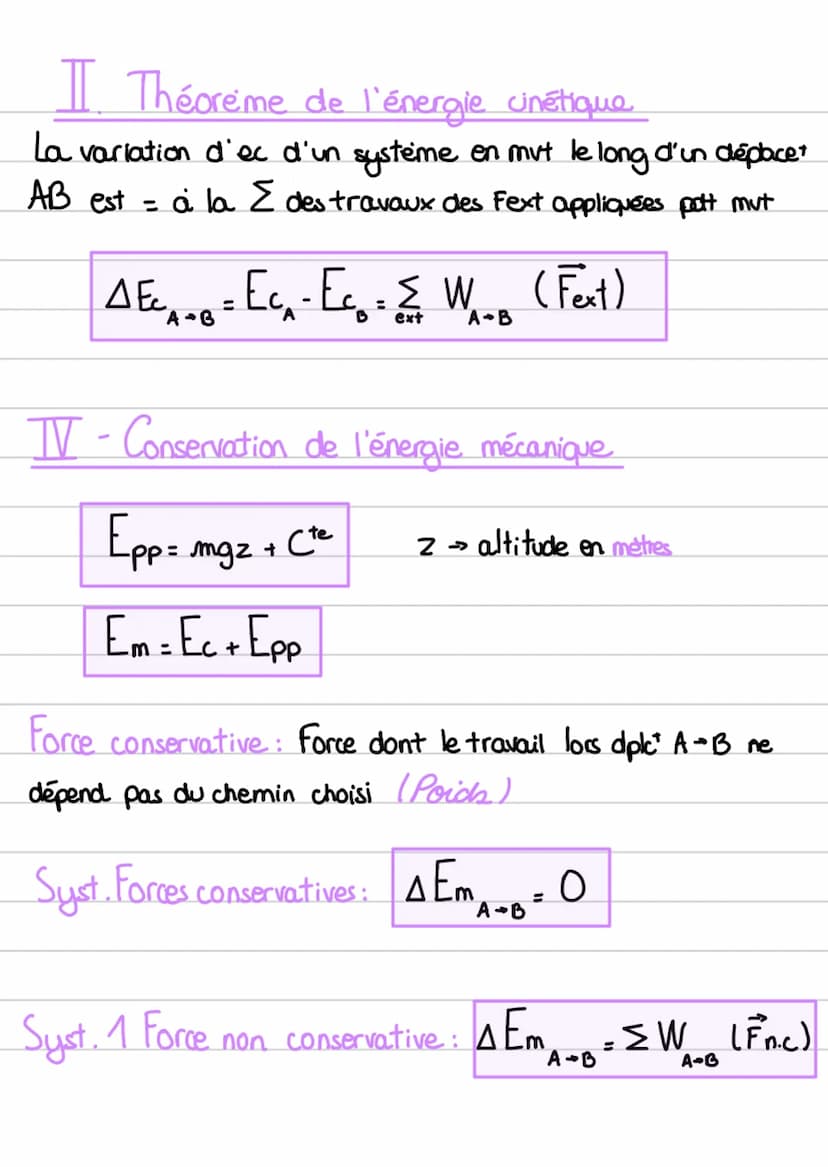 II. Théorème de l'énergie cinétique
La variation d'ec d'un système en mvt le long d'un déplacet
AB est = à la Σ des travaux des Fext appliquées pdt mvt
ΔEc A→B = Ec A - Ec B = Σ ext W A→B (F⃗ext)
IV - Conservation de l'énergie mécanique
Epp = mgz + Cte
z → altitude en mètres
Em = Ec + Epp
Force conservative : Force dont le travail lors dplct A→B ne
dépend pas du chemin choisi (Poids)
Syst. Forces conservatives : ΔEm A→B = 0
Syst. 1 Force non conservative : ΔEm A→B = Σ W A→B (F⃗n.c)